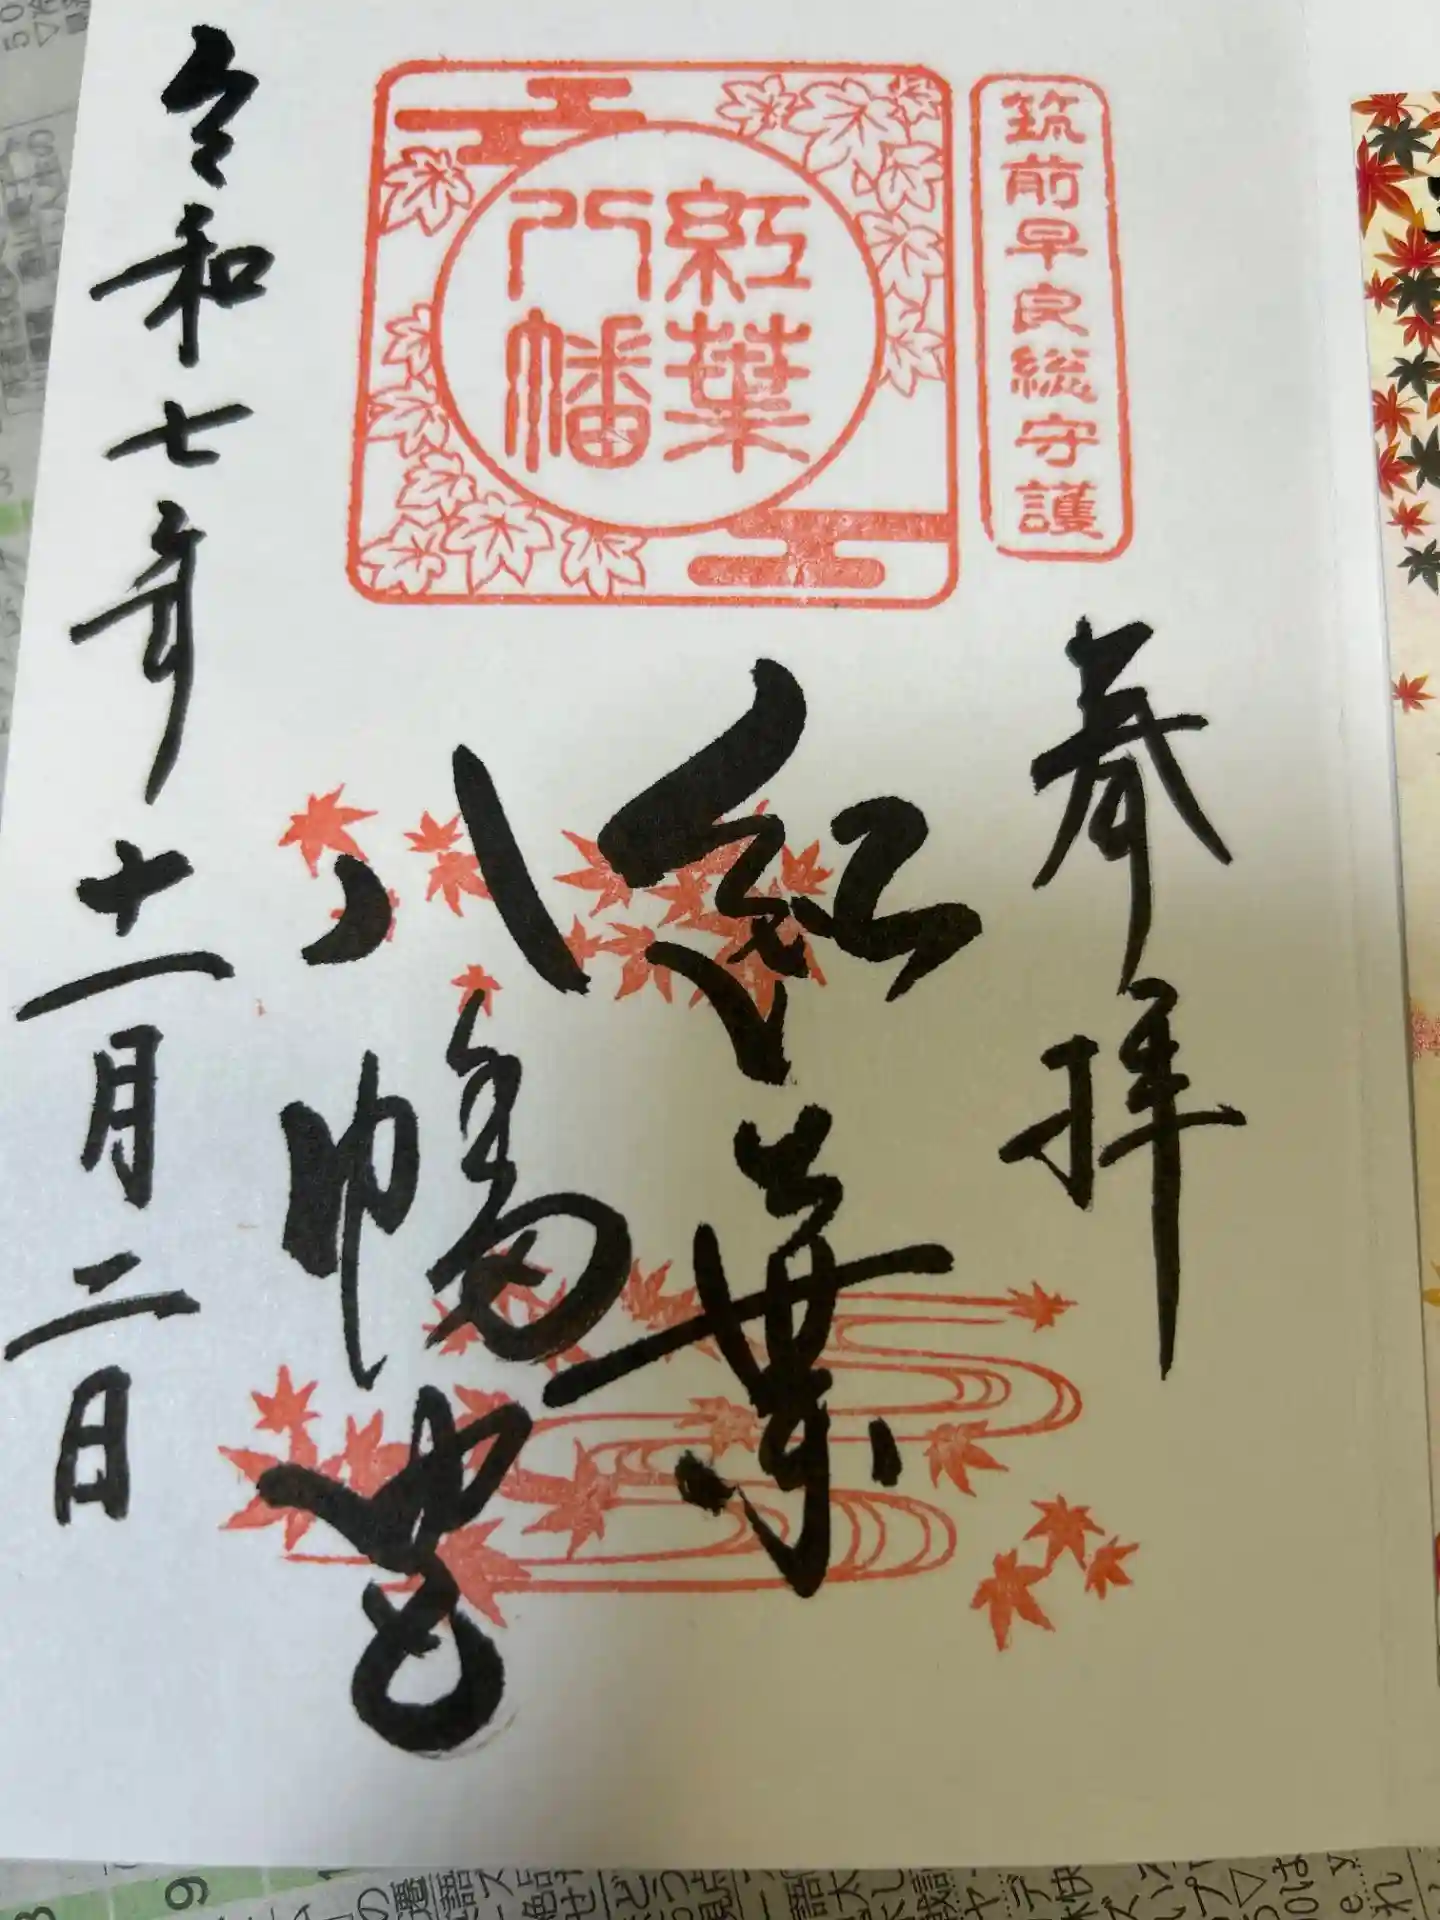 筑前早良総守護
紅葉
八幡
奉拝
紅葉
八幡宮
令和七年十一月二日